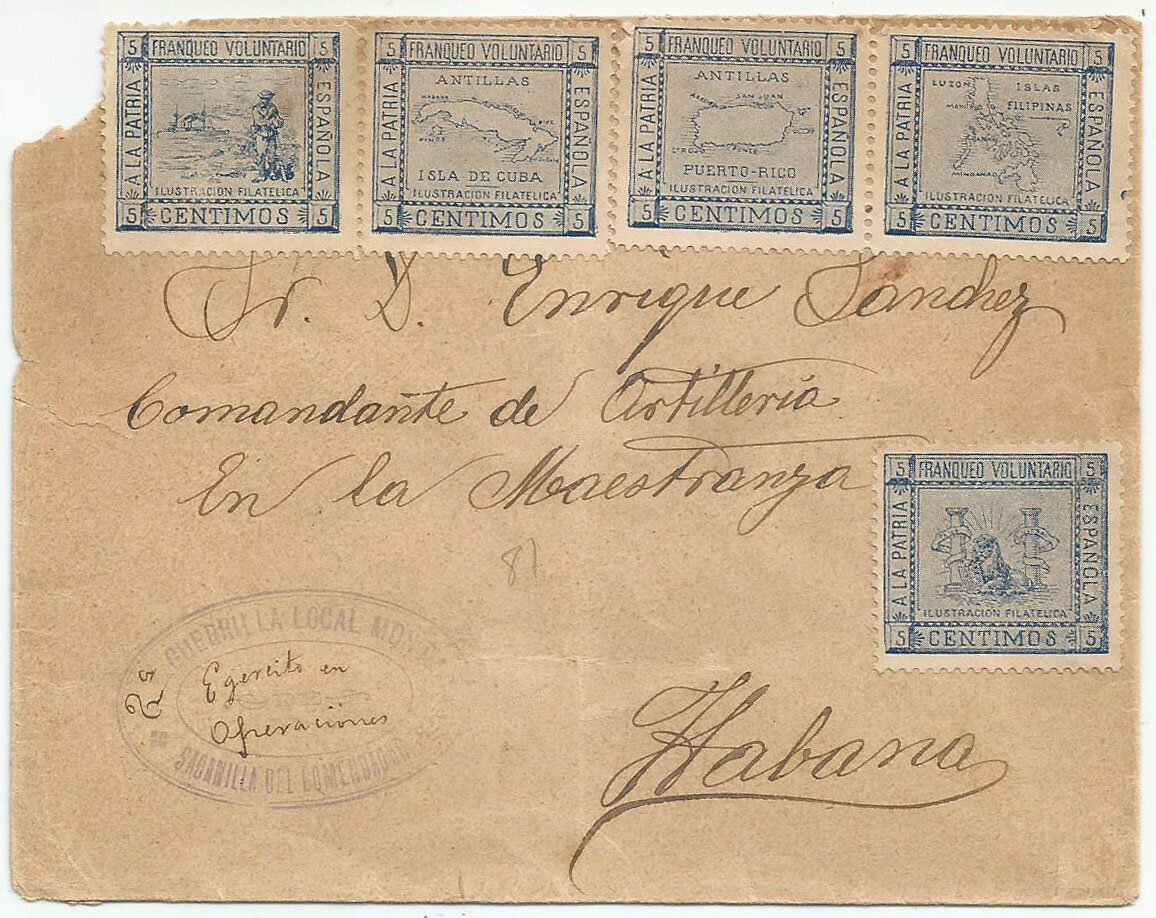 5 FRANQUEO VOLUNTARIO 5
A LA PATRIA
ESPAÑOLA
ILUSTRACION FILATELICA
5 CENTIMOS 5
5 FRANQUEO VOLUNTARIO 5
A LA PATRIA
ESPAÑOLA
ANTILLAS
HABANA
ISLA DE CUBA
ILUSTRACION FILATELICA
5 CENTIMOS 5
5 FRANQUEO VOLUNTARIO 5
A LA PATRIA
ESPAÑOLA
ANTILLAS
SAN JUAN
PONCE
PUERTO-RICO
ILUSTRACION FILATELICA
5 CENTIMOS 5
5 FRANQUEO VOLUNTARIO 5
A LA PATRIA
ESPAÑOLA
LUZON
ISLAS
FILIPINAS
MANILA
MINDANAO
ILUSTRACION FILATELICA
5 CENTIMOS 5
Sr. D. Enrique Sánchez
Comandante de Artillería
En la Maestranza
5 FRANQUEO VOLUNTARIO 5
A LA PATRIA
ESPAÑOLA
ILUSTRACION FILATELICA
5 CENTIMOS 5
81
GUERRILLA LOCAL
Egercito en
Operaciones
SABANILLA DEL
Habana